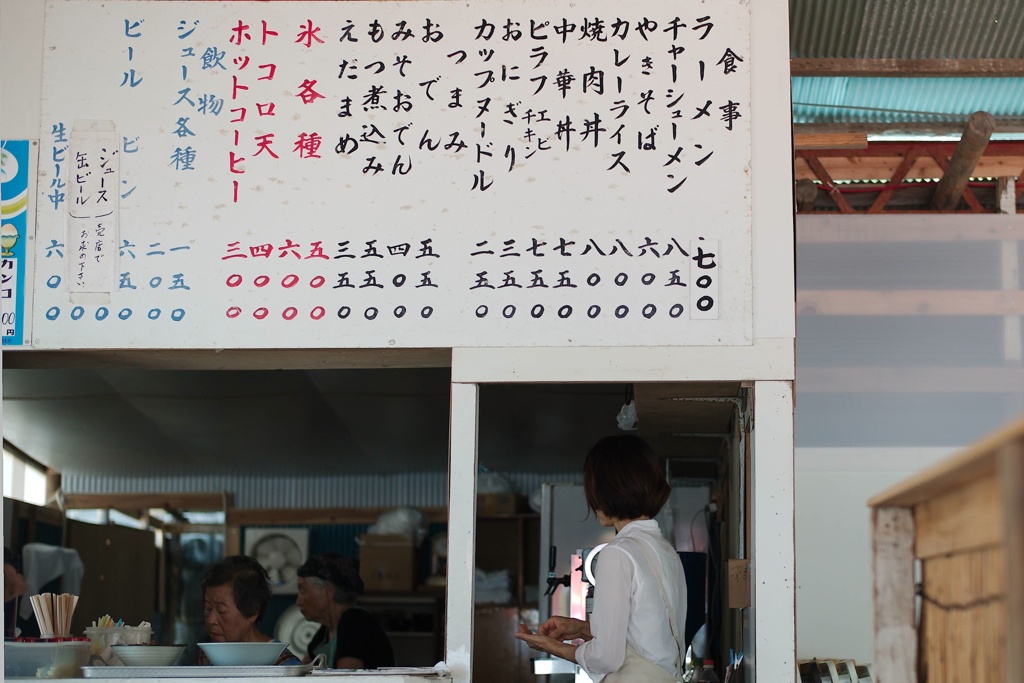 食事
ラーメン 七〇〇
チャーシューメン 八五〇
やきそば 六〇〇
カレーライス 八〇〇
焼肉丼 八〇〇
中華丼 七五〇
ピラフ エビ チキン 七五〇
おにぎり 三五〇
カップヌードル 二五〇
つまみ
おでん 五五〇
みそおでん 四〇〇
もつ煮込み 五五〇
えだまめ 三五〇
氷各種 五〇〇 六〇〇
トコロ天 四〇〇
ホットコーヒー 三〇〇
飲物
ジュース各種 一五〇 二〇〇
ビール ビン 六五〇
ジュース
缶ビール
売店で
お求め下さい。
生ビール中 六〇〇
カンコ
00円